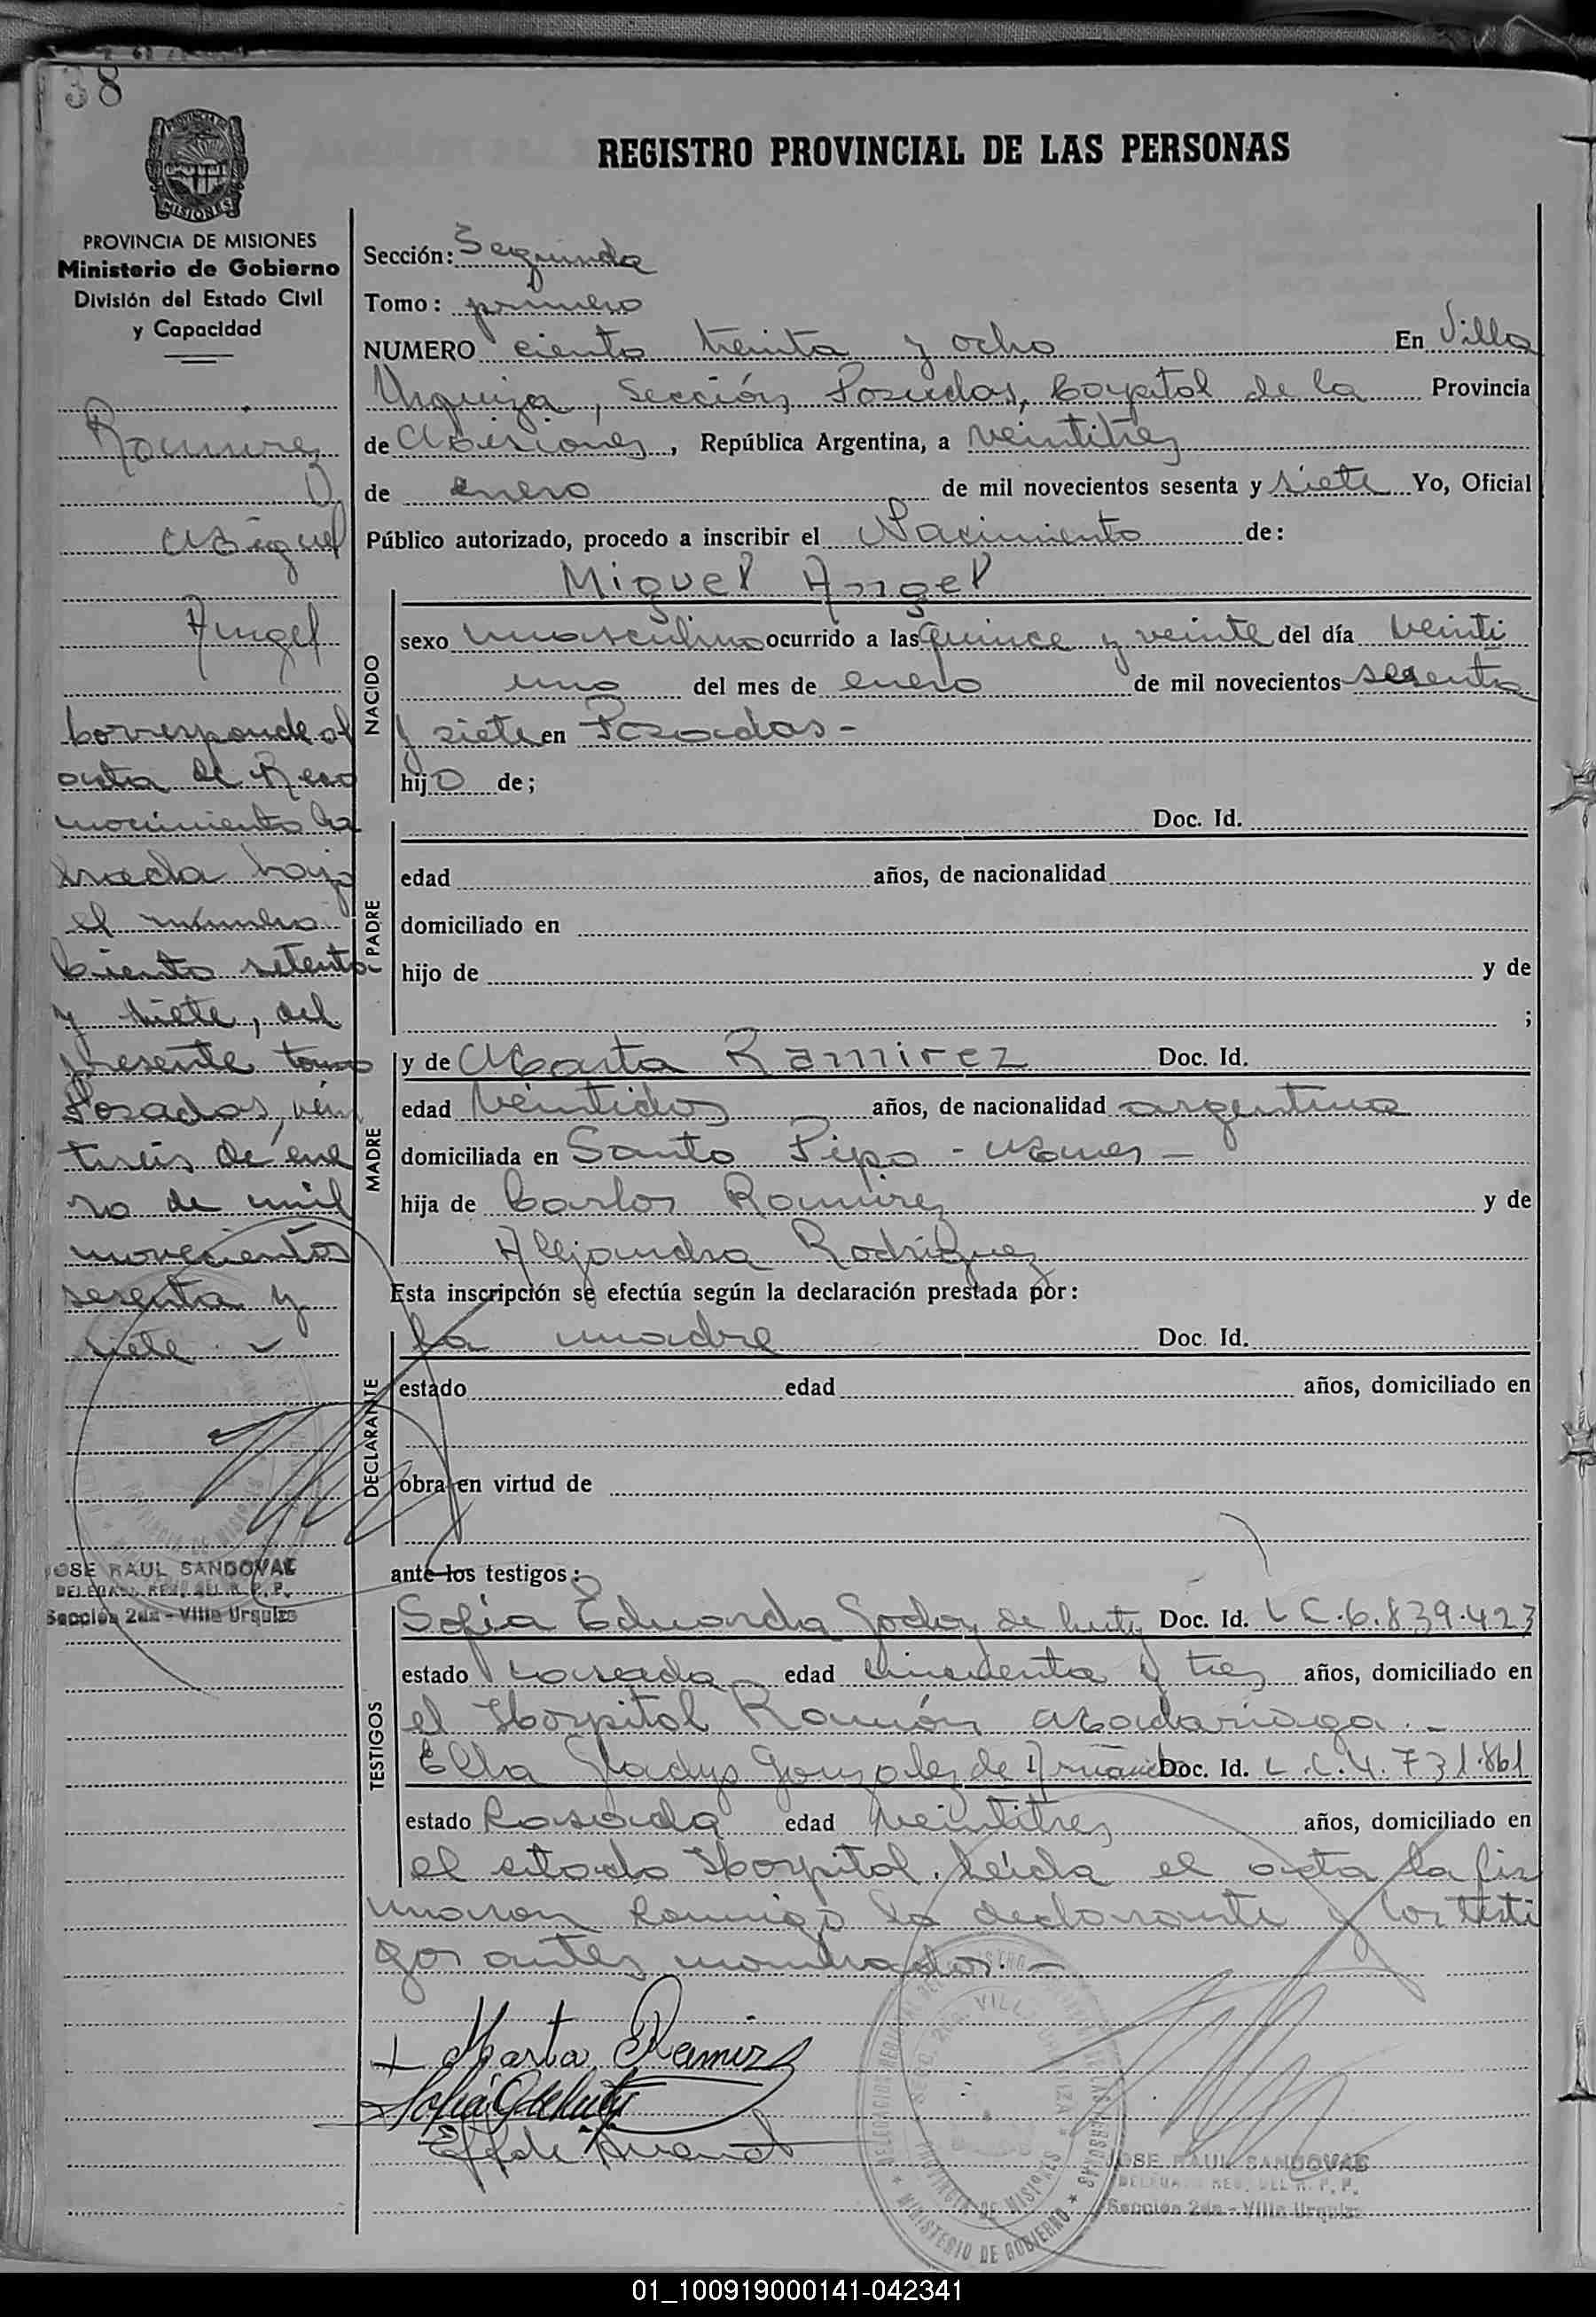 138
REGISTRO PROVINCIAL DE LAS PERSONAS
PROVINCIA DE MISIONES
Ministerio de Gobierno
División del Estado Civil
y Capacidad
Ramirez
Miguel
Angel
Corresponde al
acta de Reco
nocimiento la
brada bajo
el número
Ciento setenta
y siete, del
presente tomo
Posadas, vein
tiseis de ene
ro de mil
novecientos
sesenta y
siete
JOSE RAUL SANDOVAL
DELEGADO REG. DEL R. P. P.
Sección 2da - Villa Urquiza
Sección: Segunda
Tomo: primero
NUMERO ciento treinta y ocho En Villa
Urquiza, Sección, Posadas, Capital de la Provincia
de Misiones, República Argentina, a veintitres
de enero de mil novecientos sesenta y siete Yo, Oficial
Público autorizado, procedo a inscribir el Nacimiento de:
Miguel Angel
NACIDO
sexo masculino ocurrido a las quince y veinte del día veinti
uno del mes de enero de mil novecientos sesenta
y siete en Posadas -
hijo de;
PADRE
Doc. Id.
edad años, de nacionalidad
domiciliado en
hijo de y de
;
MADRE
y de Marta Ramirez Doc. Id.
edad veintidos años, de nacionalidad argentina
domiciliada en Santo Pipo - Mnes -
hija de Carlos Ramirez y de
Alejandra Rodriguez
Esta inscripción se efectúa según la declaración prestada por:
DECLARANTE
la madre Doc. Id.
estado edad años, domiciliado en
obra en virtud de
ante los testigos:
TESTIGOS
Sofia Eduarda Godoy de Doc. Id. L C. 6.839.423
estado casada edad cincuenta y tres años, domiciliado en
el Hospital Ramón Madariaga. -
Elba Gladys Gonzalez de Doc. Id. L.C. 4.731.861
estado Casada edad veintitres años, domiciliado en
el citado Hospital. Leída el acta la fir
maron conmigo la declarante y los testi
gos antes nombrados. -
Marta Ramirez
Sofia
MINISTERIO DE GOBIERNO
PROVINCIA DE MISIONES
JOSE RAUL SANDOVAL
DELEGADO REG. DEL R. P. P.
Sección 2da - Villa Urquiza
01_100919000141-042341